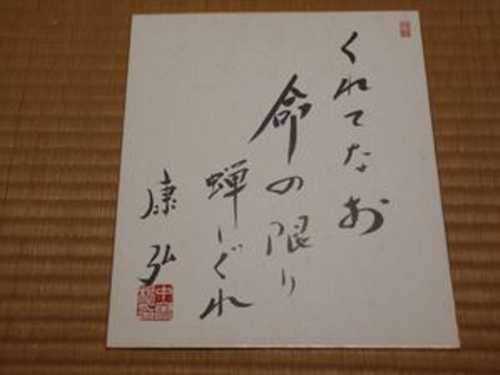 くれてなお
命の限り
蝉しぐれ
康弘